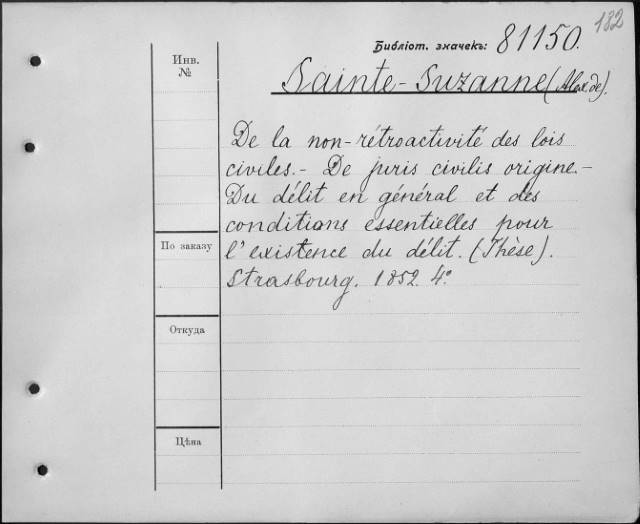 182
Библіот. значекъ: 81150.
Инв.
№
Sainte-Suzanne (Alex. de).
De la non-rétroactivité des lois
civiles. - De juris civilis origine. -
Du délit en général et des
conditions essentielles pour
l'existence du délit. (Thèse).
Strasbourg. 1852. 4°.
По заказу
Откуда
Цѣна